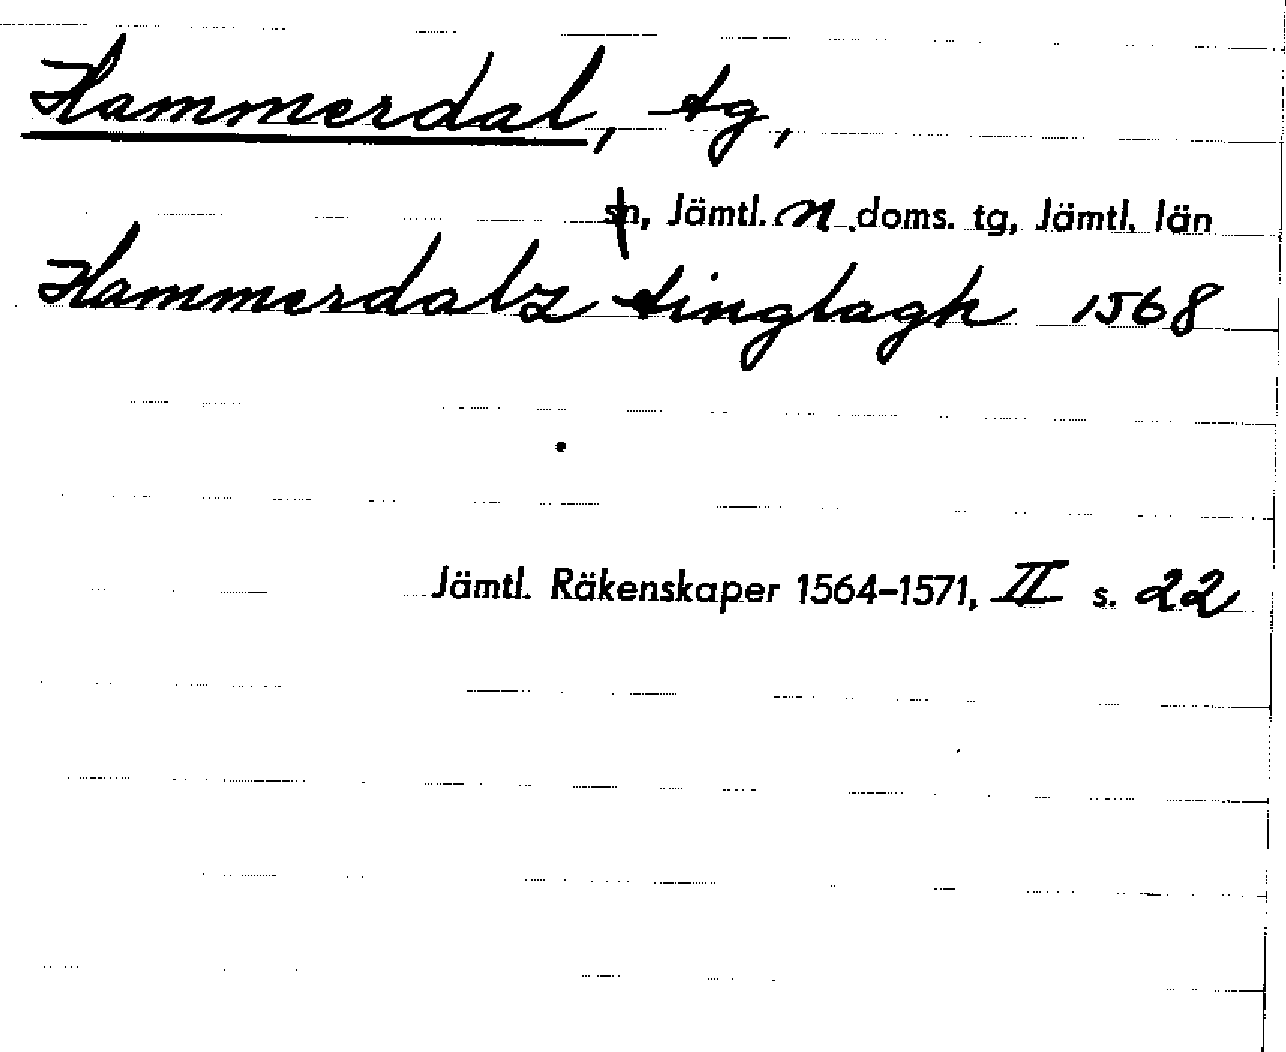 Hammerdal, tg,
sn, Jämtl. n. doms. tg, Jämtl. län
Hammerdalz tinglagh 1568
Jämtl. Räkenskaper 1564-1571, II s. 22